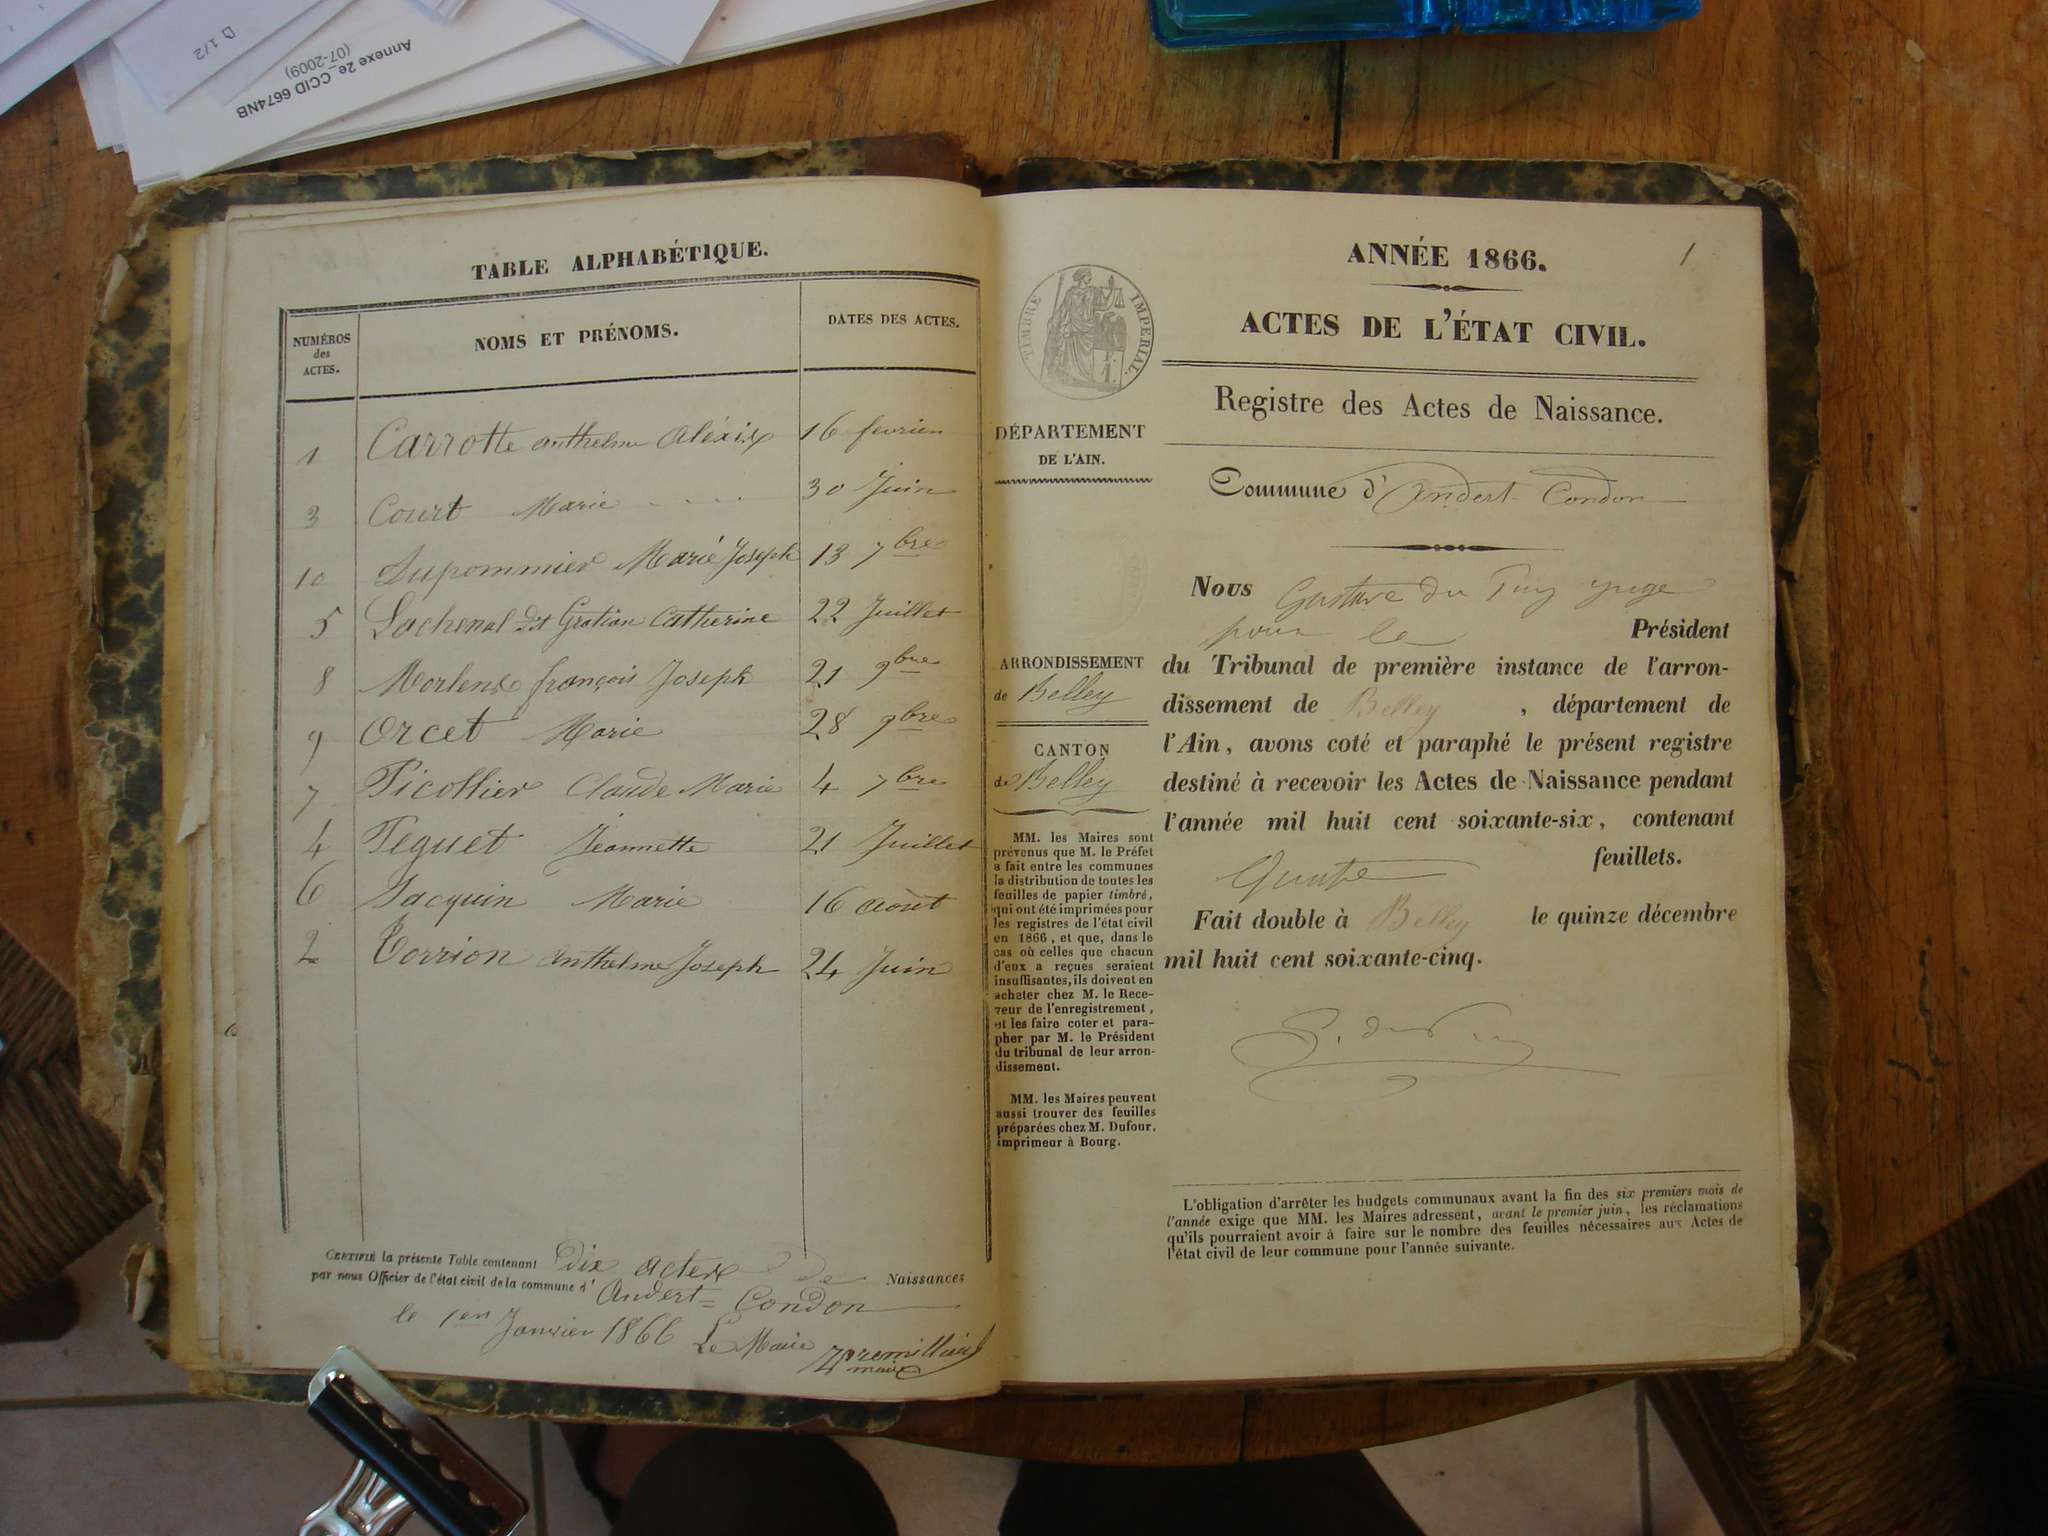 D 1/2
Annexe 2e_CCID 6674NB
(07-2009)
TABLE ALPHABÉTIQUE.
NUMÉROS
des
ACTES.
NOMS ET PRÉNOMS.
DATES DES ACTES.
1 Carrotte anthelme Aléxis 16 fevrier
3 Court Marie 30 Juin
10 Dupommier Marie Joseph 13 7bre
5 Lachenal dit Gration Catherine 22 Juillet
8 françois Joseph 21 9bre
9 Orcet Marie 28 9bre
7 Picollier Claude Marie 4 7bre
4 Peguet Jeannette 21 Juillet
6 Jacquin Marie 16 Août
2 Torrion Anthelme Joseph 24 Juin
CERTIFIÉ la présente Table contenant dix actes de Naissances
par nous Officier de l'état civil de la commune d' Andert=Condon
le 1er Janvier 1866 Le Maire
maire
1
TIMBRE IMPERIAL.
ANNÉE 1866.
ACTES DE L'ÉTAT CIVIL.
Registre des Actes de Naissance.
DÉPARTEMENT
DE L'AIN.
Commune d'Andert-Condon
ARRONDISSEMENT
de Belley
CANTON
de Belley
MM. les Maires sont
prévenus que M. le Préfet
a fait entre les communes
la distribution de toutes les
feuilles de papier timbré,
qui ont été imprimées pour
les registres de l'état civil
en 1866, et que, dans le
cas où celles que chacun
d'eux a reçues seraient
insuffisantes, ils doivent en
acheter chez M. le Rece-
veur de l'enregistrement,
et les faire coter et para-
pher par M. le Président
du tribunal de leur arron-
dissement.
MM. les Maires peuvent
aussi trouver des feuilles
préparées chez M. Dufour,
imprimeur à Bourg.
Nous Gustave du Puy juge
pour le Président
du Tribunal de première instance de l'arron-
dissement de Belley, département de
l'Ain, avons coté et paraphé le présent registre
destiné à recevoir les Actes de Naissance pendant
l'année mil huit cent soixante-six, contenant
feuillets.
Fait double à Belley le quinze décembre
mil huit cent soixante-cinq.
G. du Puy
L'obligation d'arrêter les budgets communaux avant la fin des six premiers mois de
l'année exige que MM. les Maires adressent, avant le premier juin, les réclamations
qu'ils pourraient avoir à faire sur le nombre des feuilles nécessaires aux Actes de
l'état civil de leur commune pour l'année suivante.